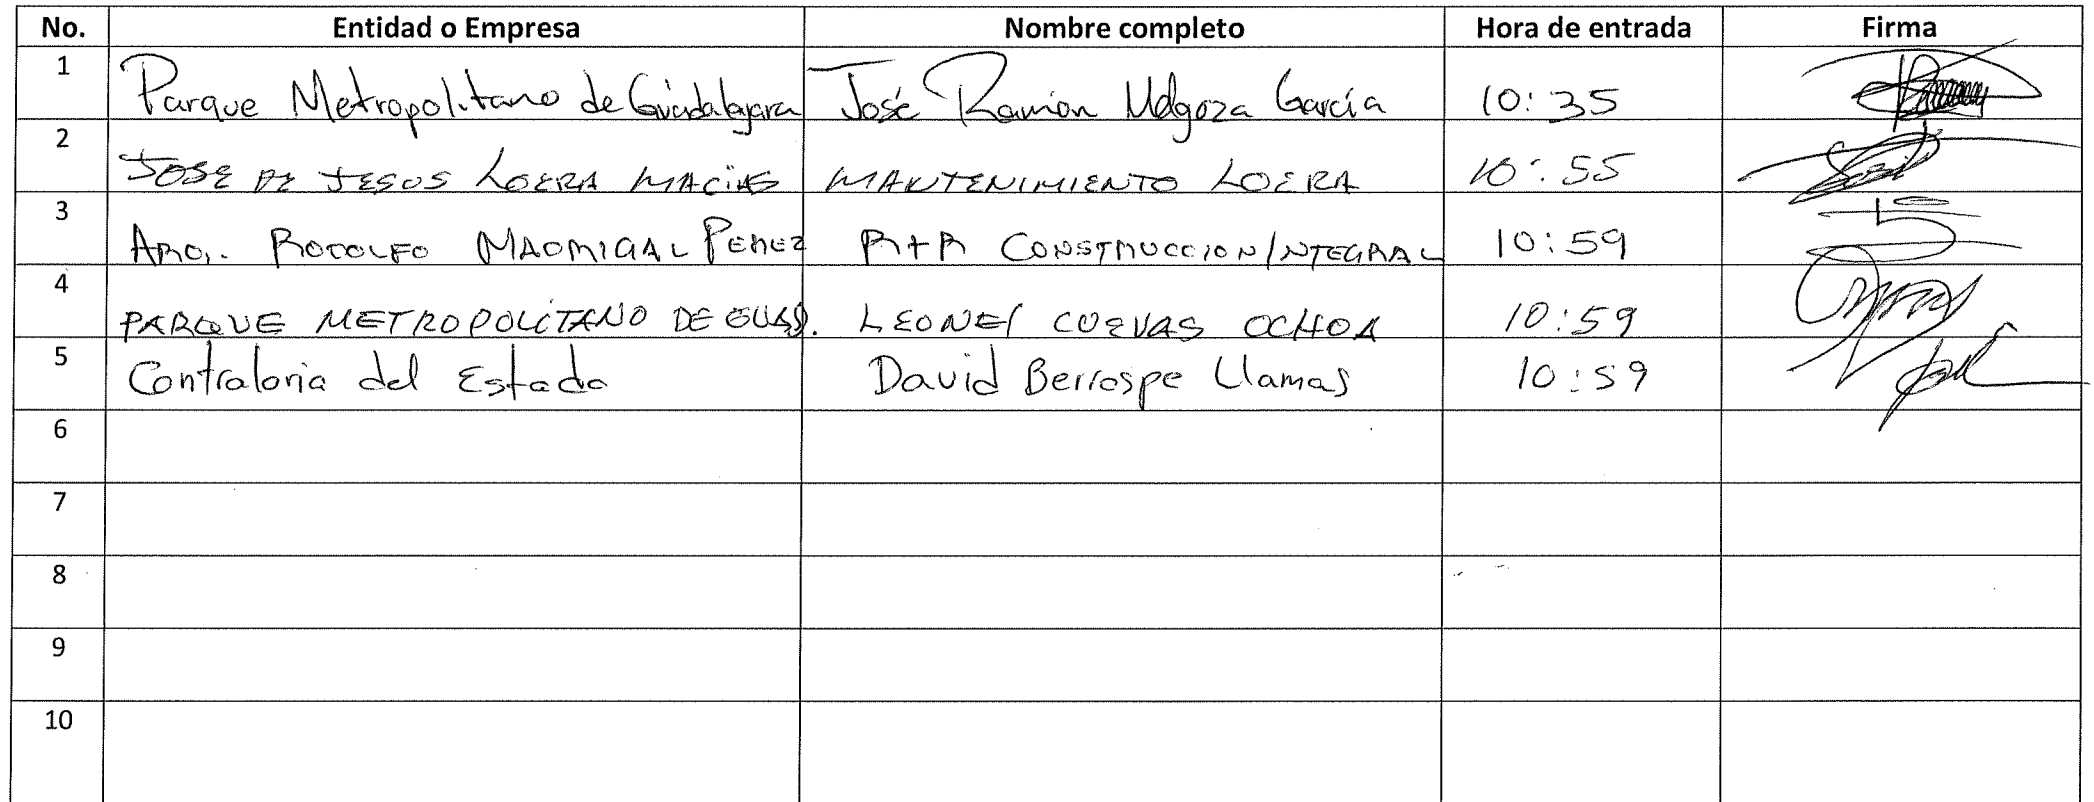 No. Entidad o Empresa Nombre completo Hora de entrada Firma
1 Parque Metropolitano de Guadalajara José Ramón Melgoza García 10:35
2 JOSE DE JESUS LOERA MACIAS MANTENIMIENTO LOERA 10:55
3 ARQ. RODOLFO MADRIGAL PEREZ R+R CONSTRUCCION INTEGRAL 10:59
4 PARQUE METROPOLITANO DE GUAD. LEONEL CUEVAS OCHOA 10:59
5 Contraloria del Estado David Berrospe Llamas 10:59
6
7
8
9
10